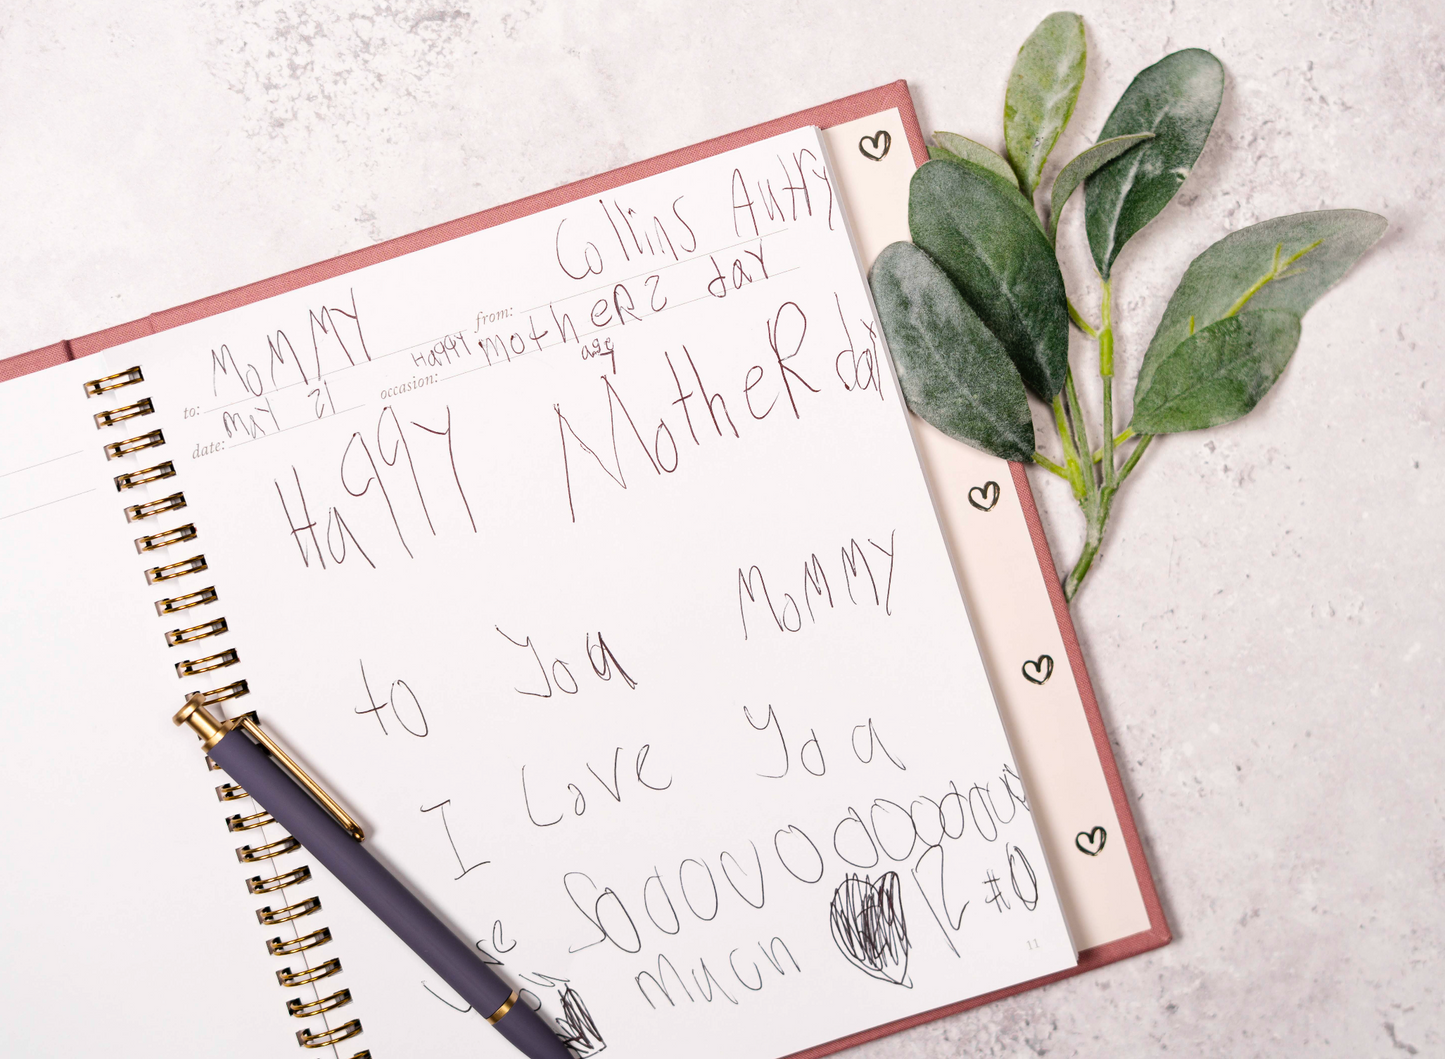 from: Collins Autry
to: MoMMY
occasion: Happy motheRs day
date: May 21
age
Happy MotheR day
to you MoMMY
I Love you
Soooooooooooooo
much
11